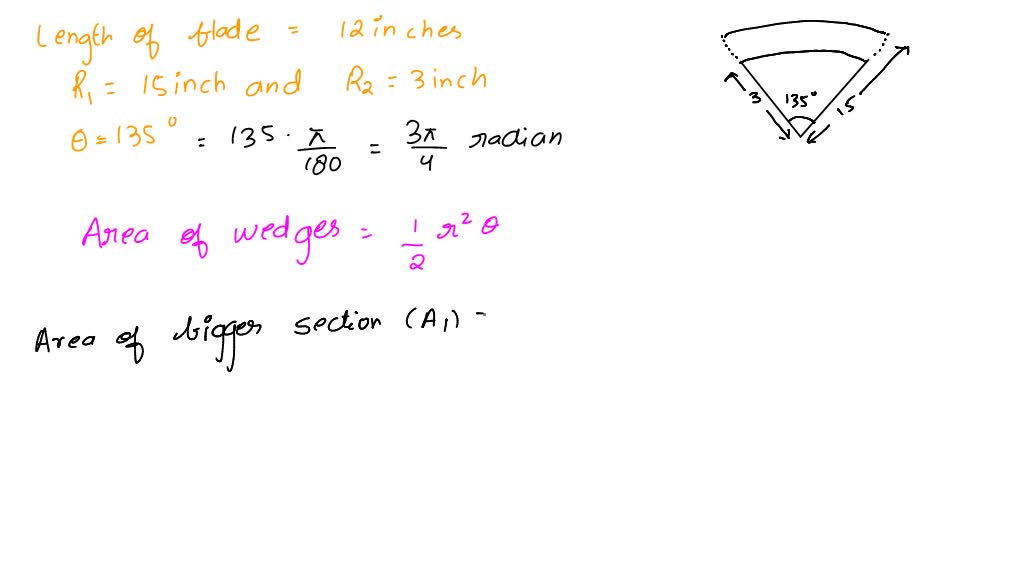 Length of blade = 12 inches
R₁ = 15 inch and R₂ = 3 inch
θ = 135° = 135 · π/180 = 3π/4 radian
Area of wedges = 1/2 r² θ
Area of bigger section (A₁) -
3
135°
15